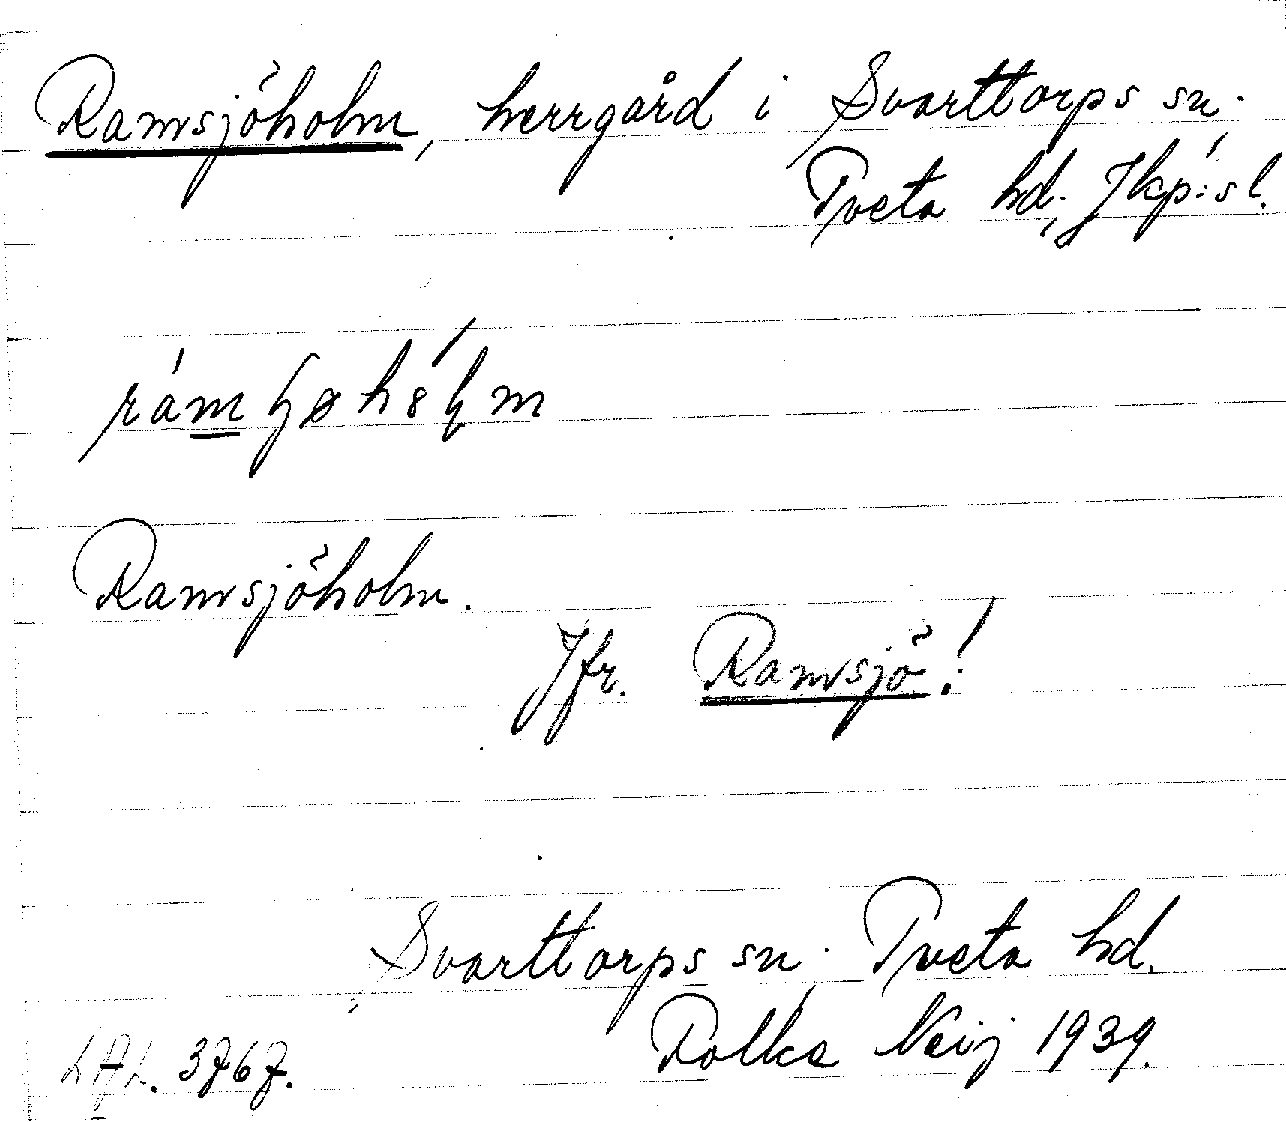 Ramsjöholm, herrgård i Svarttorps sn.
Tveta hd., Jkp:s l.
Ramsjöholm.
Jfr. Ramsjö!
Svarttorps sn. Tveta hd.
Neij 1939.
3767.